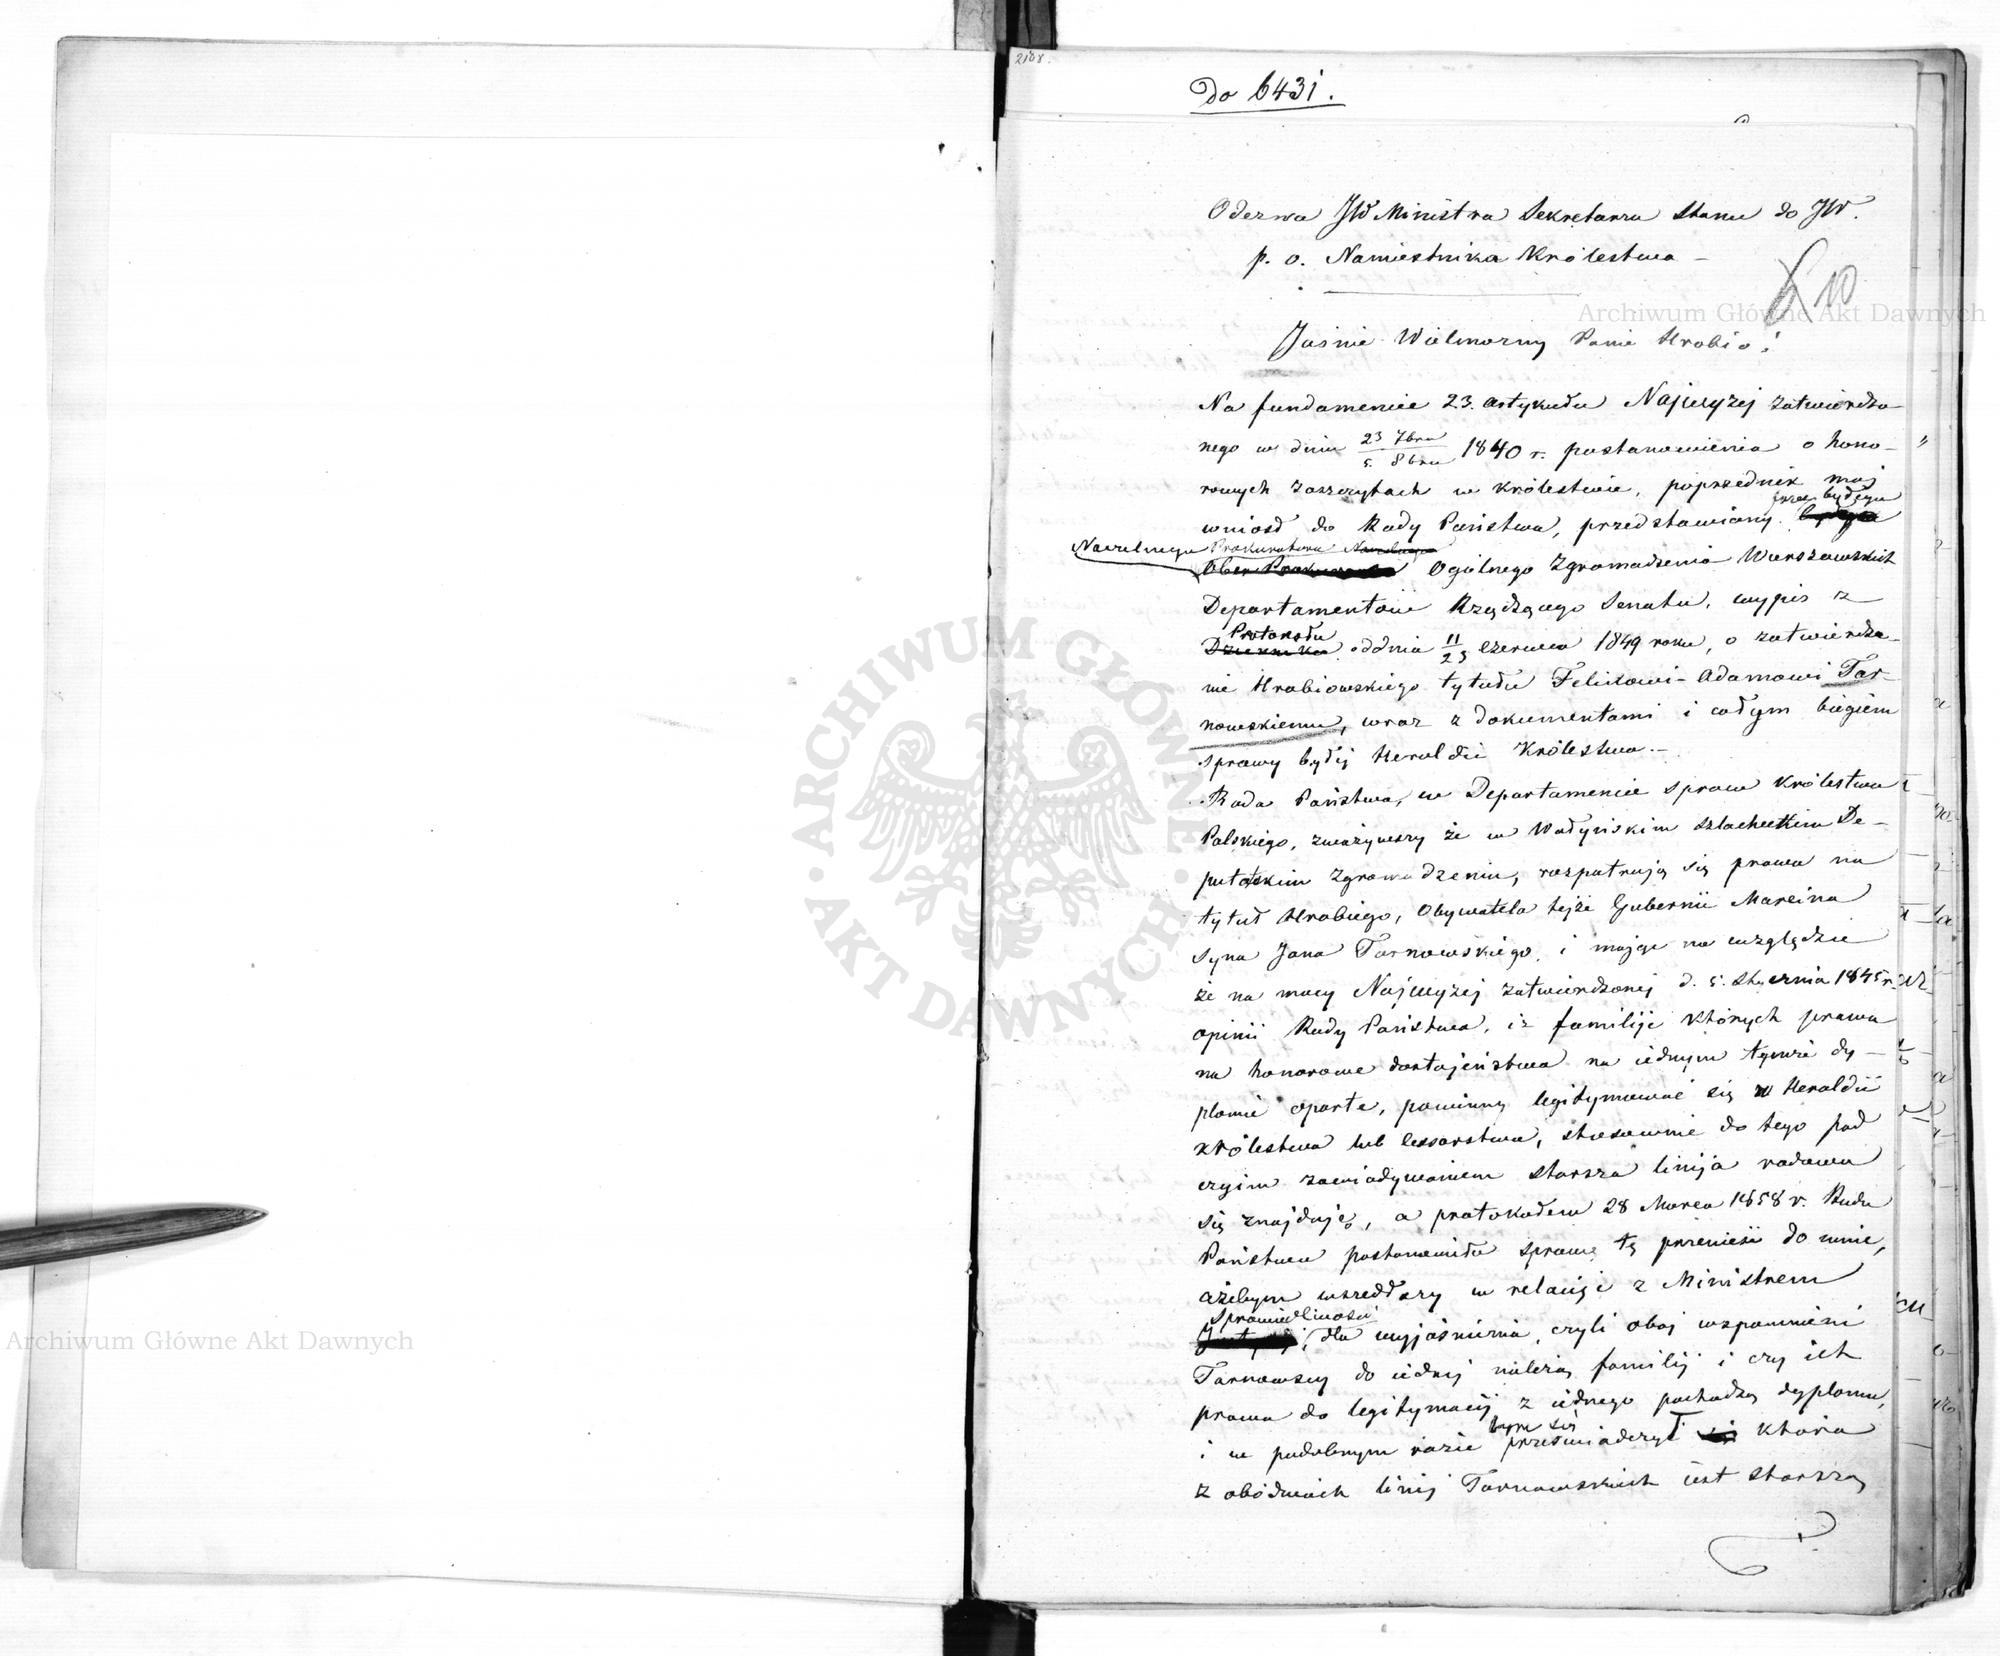 2108.
Do 6431.
Odezwa JW Ministra Sekretarza Stanu do JW.
p. o. Namiestnika Królestwa –
10
Jaśnie Wielmożny Panie Hrabio!
Na fundamencie 23. artykułu Najwyżej zatwierdzo-
nego w dniu 23 7bra / 5. 8bra 1840 r. postanowienia o hono-
rowych zaszczytach w Królestwie, poprzednik mój
wniosł do Rady Państwa, przedstawiony przez byłego
Naczelnego Prokuratora Ogólnego Zgromadzenia Warszawskich
Departamentów Rządzącego Senatu, wypis z
Protokołu oddnia 11/23 czerwca 1849 roku, o zatwierdze-
nie Hrabiowskiego tytułu Felixowi-Adamowi Tar-
nowskiemu, wraz z dokumentami i całym biegiem
sprawy byłej Heroldii Królestwa.–
Rada Państwa, w Departamencie spraw Królestwa
Polskiego, zważywszy że w Wołyńskim Szlacheckim De-
putatskim Zgromadzeniu, rozpatrują się prawa na
tytuł Hrabiego, Obywatela tejże Gubernii Marcina
syna Jana Tarnowskiego, i mając na względzie
że na mocy Najwyżej zatwierdzonej d. 5. Stycznia 1845 r.
opinii Rady Państwa, iż familije których prawa
na honorowe dostojeństwa na iednym tymże dy-
plomie oparte, powinny legitymować się w Heroldii
Królestwa lub Cesarstwa, stosownie do tego pod
czyim zawiadywaniem starsza linija rodowa
się znajduje, a protokołem 28 Marca 1858 r. Rada
Państwa postanowiła sprawę tę przenieść do mnie,
ażebym wszedłszy w relacije z Ministrem
Sprawiedliwości, dla wyjaśnienia, czyli obaj wspomnieni
Tarnowscy do iednej należą familij i czy ich
prawa do legitymacij z iednego pochodzą dyplomu,
i w podobnym razie bym się przeświadczył która
z obódwóch linij Tarnowskich iest starszą
Archiwum Główne Akt Dawnych
Archiwum Główne Akt Dawnych
ARCHIWUM GŁÓWNE
AKT DAWNYCH